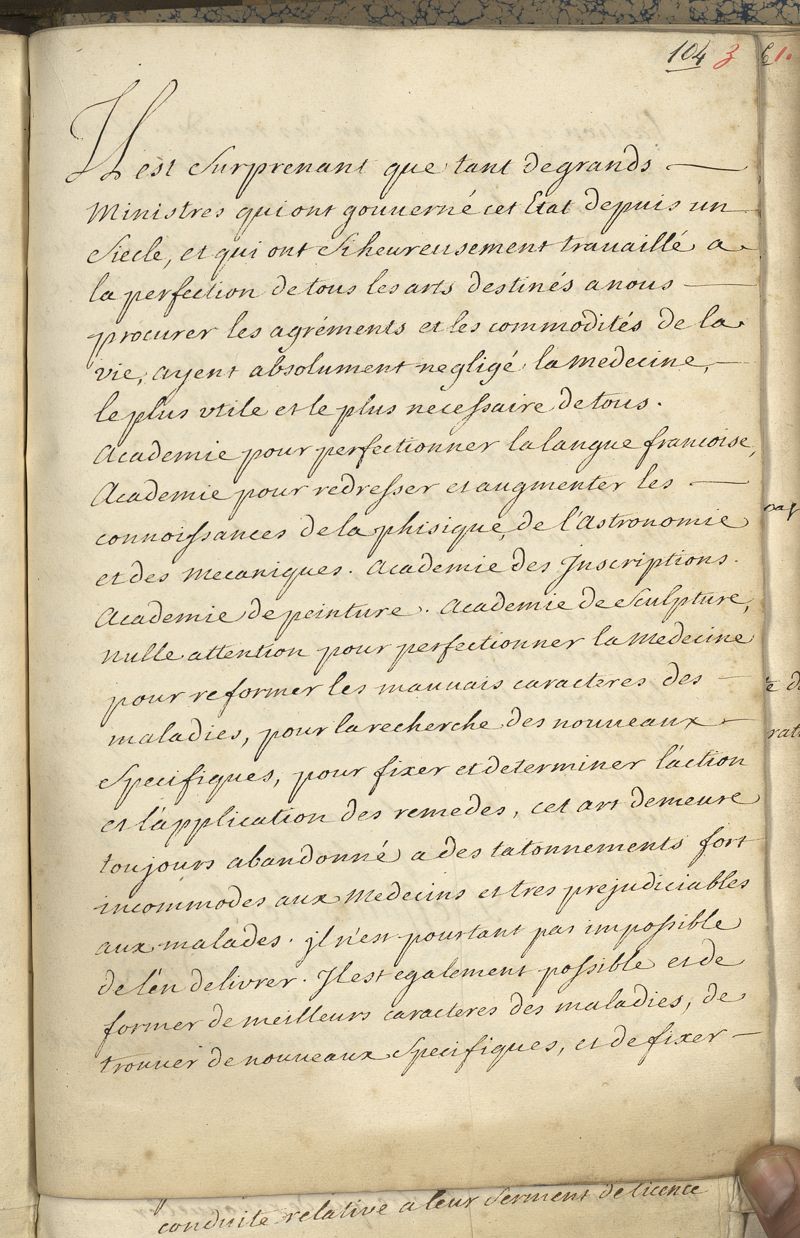 104 3
61.
Il est Surprenant que tant de grands
Ministres qui ont gouverné cet Etat depuis un
Siecle, et qui ont si heureusement travaillé a
la perfection de tous les arts destinés a nous
procurer les agréments et les commodités de la
vie, ayent absolument negligé la medecine,
le plus vtile et le plus necessaire de tous.
Academie pour perfectionner la langue francoise,
Academie pour redresser et augmenter les
connoissances de la phisique, de l'Astronomie
et des Mecaniques. Academie des Inscriptions.
Academie de peinture. Academie de Sculpture,
Nulle attention pour perfectionner la Medecine
pour reformer les mauuais caracteres des
maladies, pour la recherche des nouueaux
Specifiques, pour fixer et determiner l'action
et l'application des remedes, cet art demeure
toujours abandonné a des tatonnements fort
incommodes aux Medecins et tres prejudiciables
aux malades. jl n'est pourtant pas impossible
de l'en delivrer. Il est egalement possible et de
former de meilleurs caracteres des maladies, de
trouuer de nouueaux Specifiques, et de fixer
conduite relative a leur Serment de licence